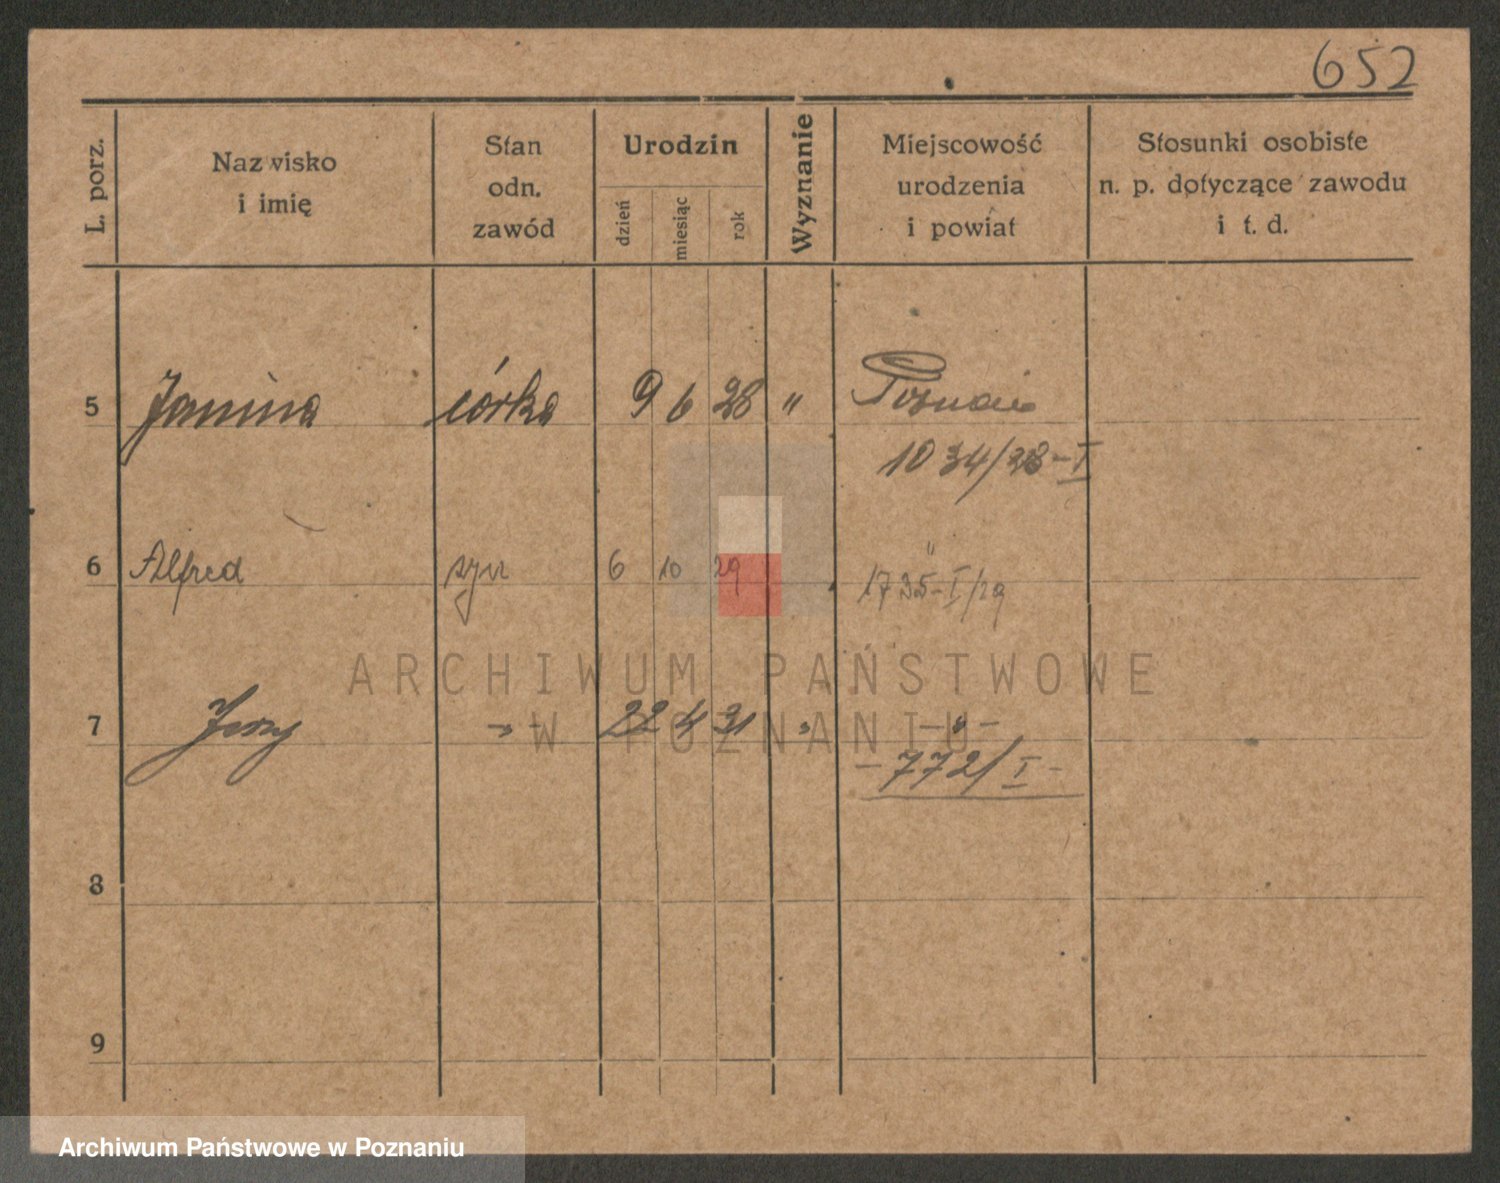 652
L. porz.
Nazwisko
i imię
Stan
odn.
zawód
Urodzin
dzień
miesiąc
rok
Wyznanie
Miejscowość
urodzenia
i powiat
Stosunki osobiste
n. p. dotyczące zawodu
i t. d.
5 Janina córka 9 6 28 " Poznań
1034/28-I
6 Alfred syn 6 10 29 "
1735-I/29
7 Jerzy -"- 22 4 31 " -"-
-772/I-
8
9
ARCHIWUM PAŃSTWOWE
W POZNANIU
Archiwum Państwowe w Poznaniu